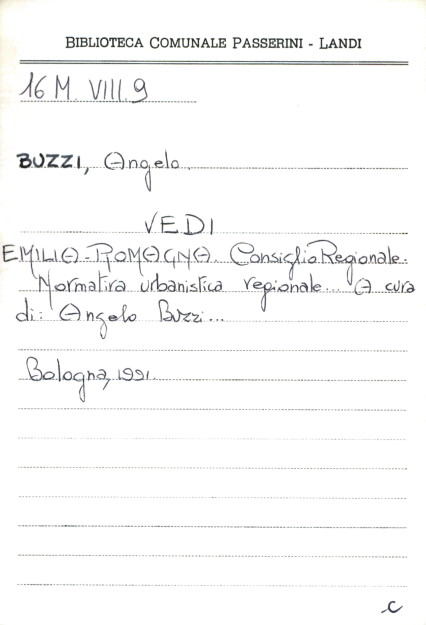 BIBLIOTECA COMUNALE PASSERINI - LANDI
16 M. VIII. 9
BUZZI, Angelo.
VEDI
EMILIA-ROMAGNA. Consiglio Regionale.
Normativa urbanistica regionale... A cura
di: Angelo Buzzi...
Bologna, 1991.
C